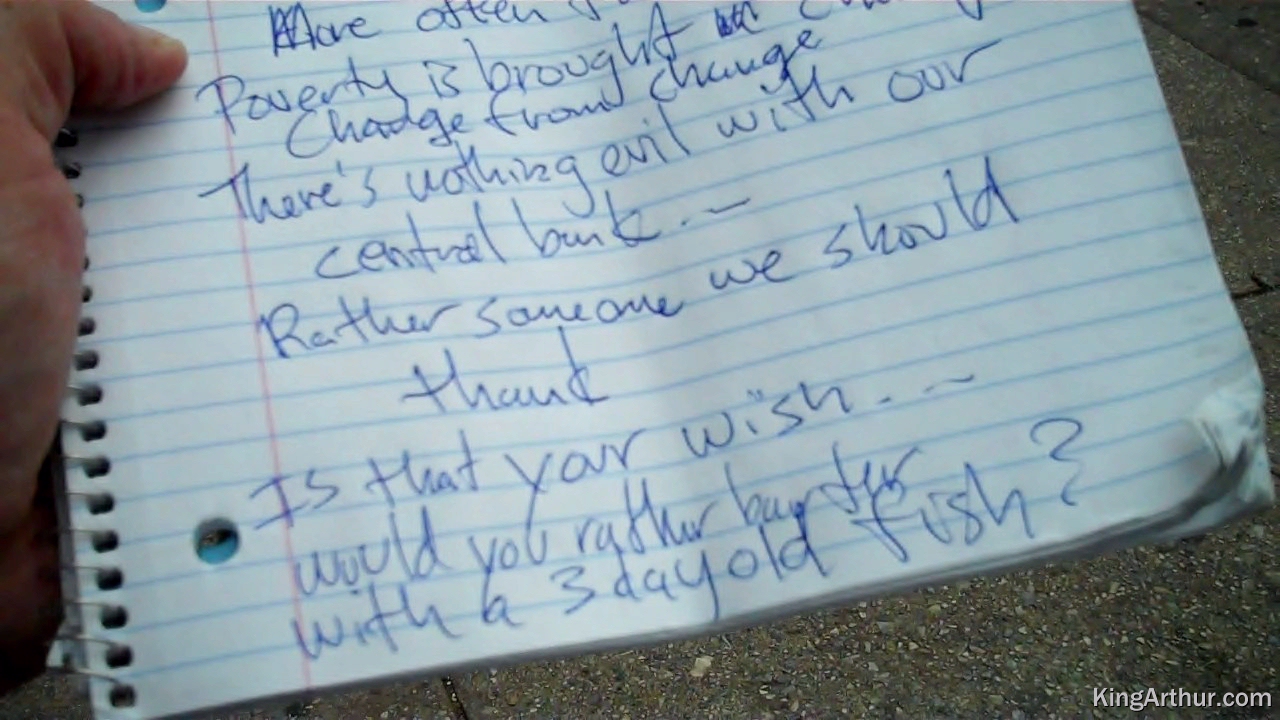 More often
Poverty is brought
Change from change
There's nothing evil with our
central bank . —
Rather someone we should
thank
Is that your wish . —
would you rather barter
with a 3 day old fish?
KingArthur.com